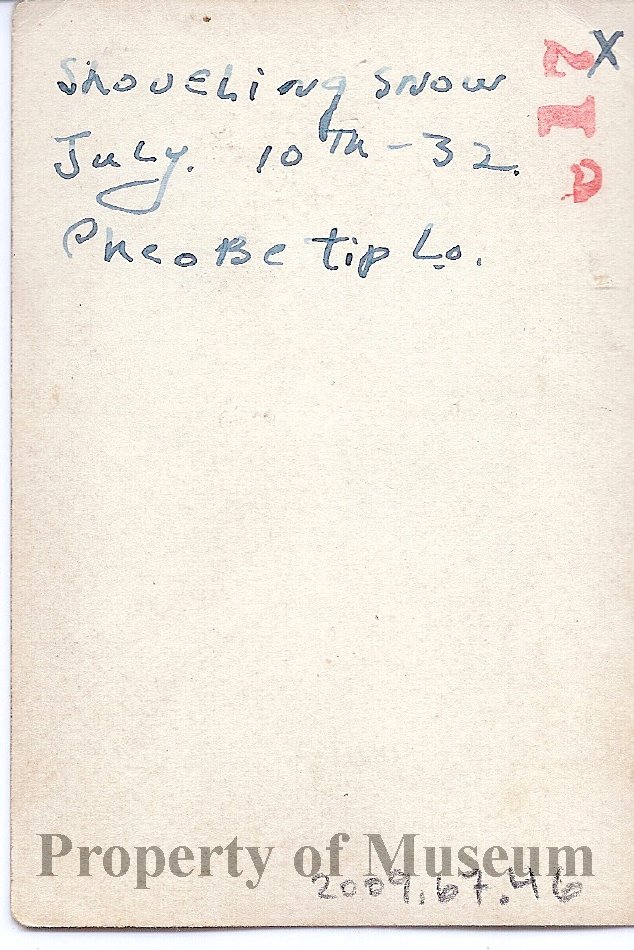 Shoveling snow
X
July. 10TH - 32.
PheoBe tip Lo.
212
Property of Museum
2009.67.46